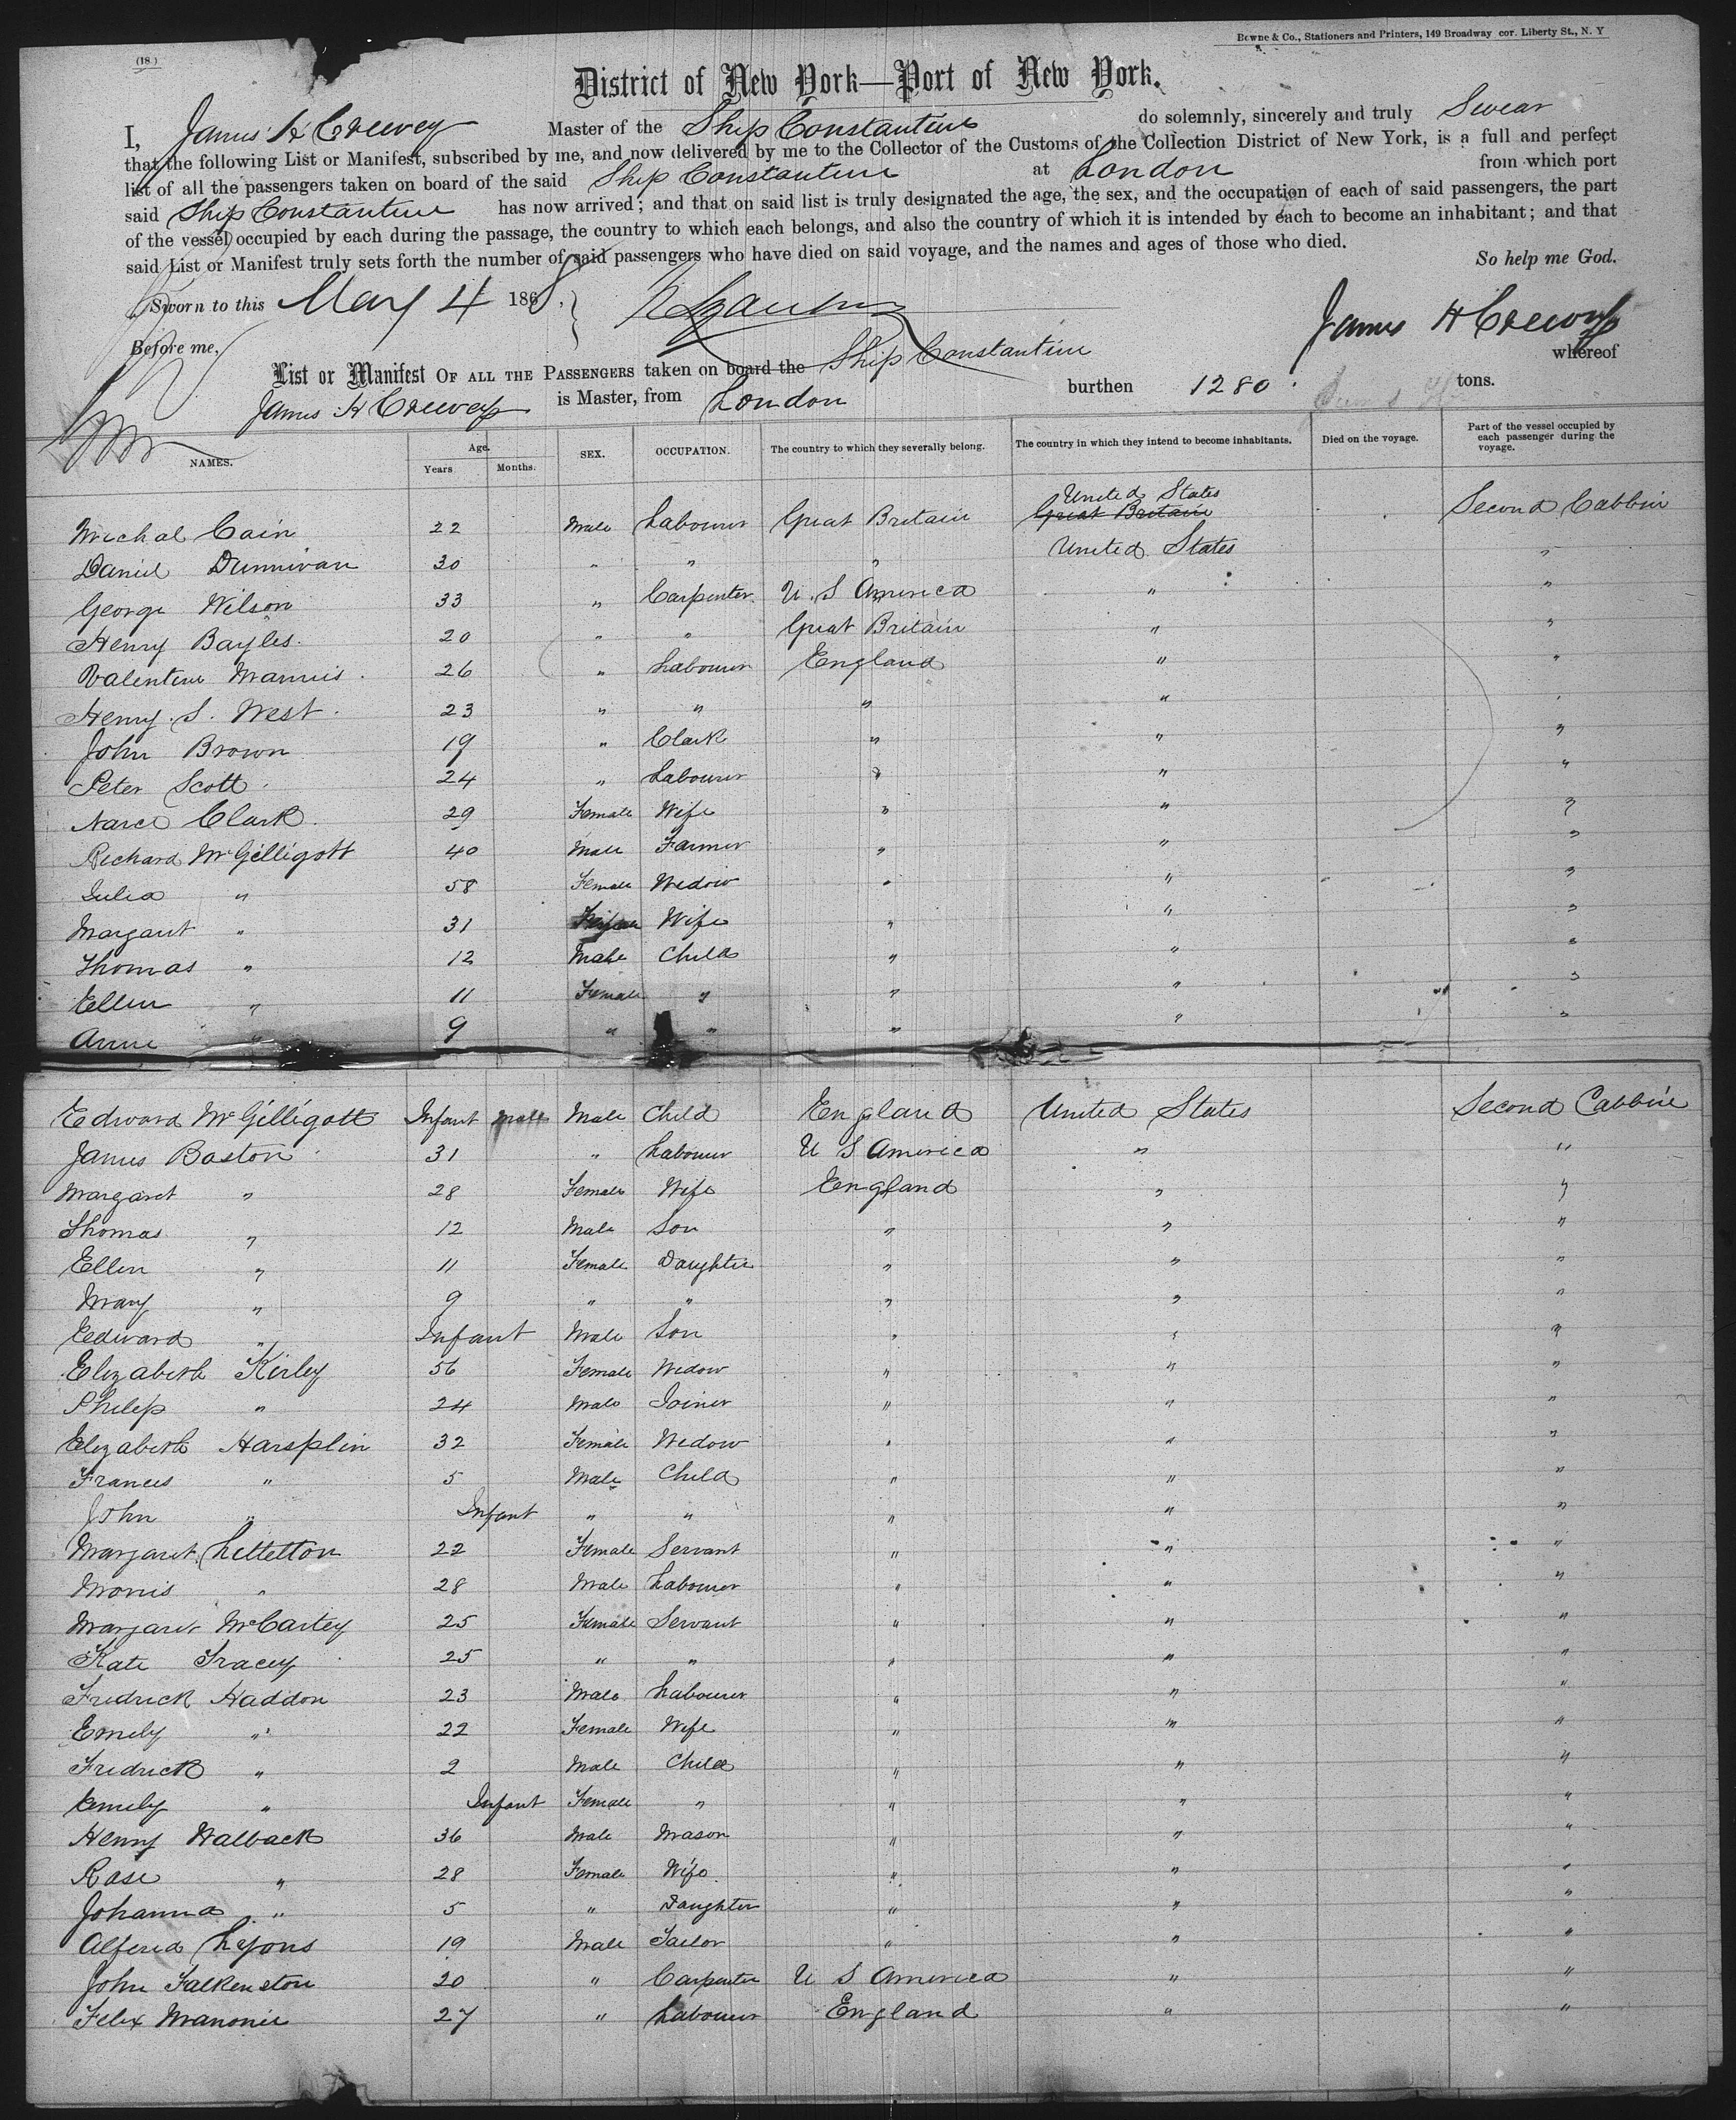 (18.)
Bowne & Co., Stationers and Printers, 149 Broadway cor. Liberty St., N. Y
District of New York—Port of New York.
I, James H Creevey Master of the Ship Constantine do solemnly, sincerely and truly Swear
that the following List or Manifest, subscribed by me, and now delivered by me to the Collector of the Customs of the Collection District of New York, is a full and perfect
list of all the passengers taken on board of the said Ship Constantine at London from which port
said Ship Constantine has now arrived; and that on said list is truly designated the age, the sex, and the occupation of each of said passengers, the part
of the vessel occupied by each during the passage, the country to which each belongs, and also the country of which it is intended by each to become an inhabitant; and that
said List or Manifest truly sets forth the number of said passengers who have died on said voyage, and the names and ages of those who died.
So help me God.
Sworn to this May 4 1868.
James H Creevey
Before me,
List or Manifest OF ALL THE PASSENGERS taken on board the Ship Constantine whereof
James H Creevey is Master, from London burthen 1280 tons.
NAMES. Age. Years Months. SEX. OCCUPATION. The country to which they severally belong. The country in which they intend to become inhabitants. Died on the voyage. Part of the vessel occupied by each passenger during the voyage.
United States
Michal Cain 22 Male Labourer Great Britain Great Britain Second Cabbin
Daniel Dunnivan 30 " " " United States "
George Wilson 33 " Carpenter U. S America " "
Henry Bayles 20 " " Great Britain " "
Valentine Mannis 26 " Labourer England " "
Henry. S. West 23 " " " " "
John Brown 19 " Clark " " "
Peter Scott 24 " Labourer " " "
Clark 29 Female Wife " " "
Richard McGilligott 40 Male Farmer " " "
Julia " 58 Female Widow " " "
Margaret " 31 Wife " " "
Thomas " 12 Male Child " " "
Ellen " 11 Female " " " "
Anne " 9 " " " " "
Edward McGilligott Infant Male Child England United States Second Cabbin
James Boston 31 " Labourer U S America " "
Margaret " 28 Female Wife England " "
Thomas " 12 Male Son " " "
Ellen " 11 Female Daughter " " "
Mary " 9 " " " " "
Edward " Infant Male Son " " "
Elizabeth Kirley 56 Female Widow " " "
Philip " 24 Male Joiner " " "
Elizabeth Harsplin 32 Female Widow " " "
Frances " 5 Male Child " " "
John " Infant " " " " "
Margaret Littelton 22 Female Servant " " "
Morris " 28 Male Labourer " " "
Margaret McCartey 25 Female Servant " " "
Kate Tracey 25 " " " " "
Fredrick Haddon 23 Male Labourer " " "
Emily " 22 Female Wife " " "
Fredrick " 2 Male Child " " "
Emily " Infant Female " " " "
Henry Walback 36 Male Mason " " "
Rose " 28 Female Wife " " "
Johanna " 5 " Daughter " " "
Alfred Lyons 19 Male Tailor " " "
John Falkenston 20 " Carpenter U S America " "
Felix Manonie 27 " Labourer England " "